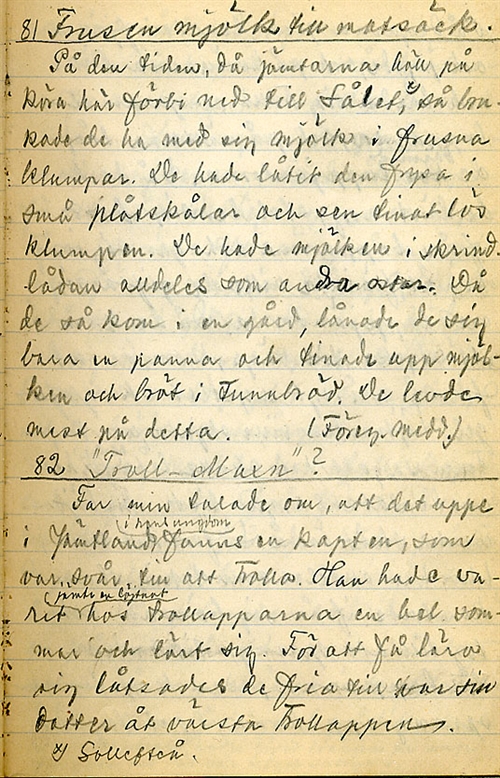 81 Frusen mjölk till matsäck.
På den tiden, då jämtarna höll på
köra här förbi ned till Sålet,x) så bru
kade de ha med sig mjölk i frusna
klumpar. De hade låtit den frysa i
små plåtskålar och sen tinat lös
klumpen. De hade mjölken i skrind-
lådan alldeles som andra ostar. Då
de så kom i en gård, lånade de sig
bara en panna och tinade upp mjöl-
ken och bröt i Tunnbröd. De levde
mest på detta. (Föreg. medd.)
82 "Troll-Maxn"?
Far min talade om, att det uppe
i hans ungdom
i Jämtland fanns en kapten, som
var svår till att trolla. Han hade va-
jämte en löjtnant
rit hos trollapparna en hel som-
mar och lärt sig. För att få lära
sig låtsades de fria till var sin
dotter åt värsta trollappen.
x) Sollefteå.